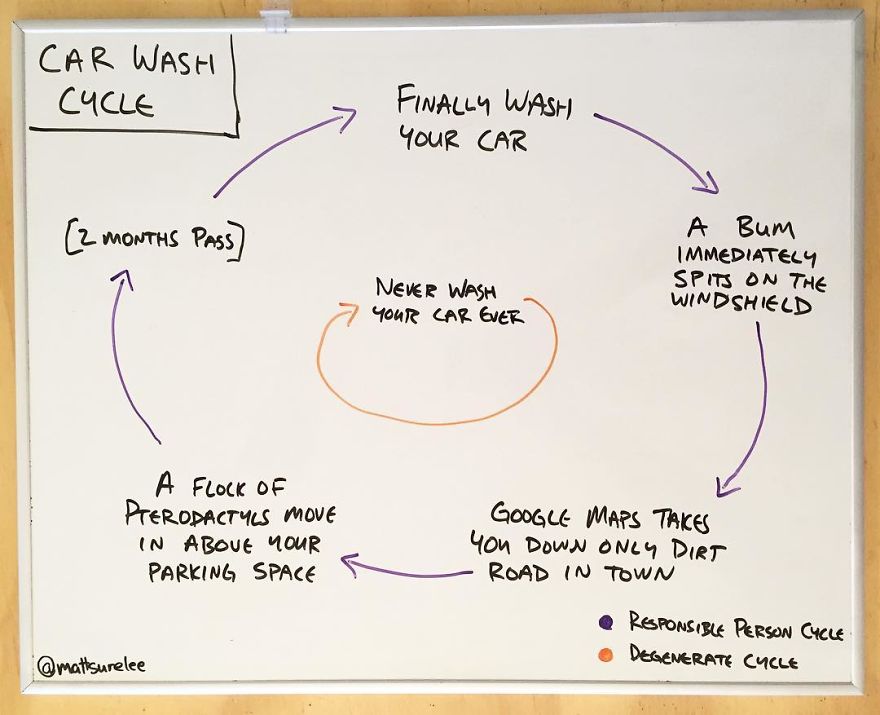 CAR WASH
CYCLE
FINALLY WASH
YOUR CAR
A BUM
IMMEDIATELY
SPITS ON THE
WINDSHIELD
GOOGLE MAPS TAKES
YOU DOWN ONLY DIRT
ROAD IN TOWN
A FLOCK OF
PTERODACTYLS MOVE
IN ABOVE YOUR
PARKING SPACE
[2 MONTHS PASS]
NEVER WASH
YOUR CAR EVER
RESPONSIBLE PERSON CYCLE
DEGENERATE CYCLE
@mattsurelee